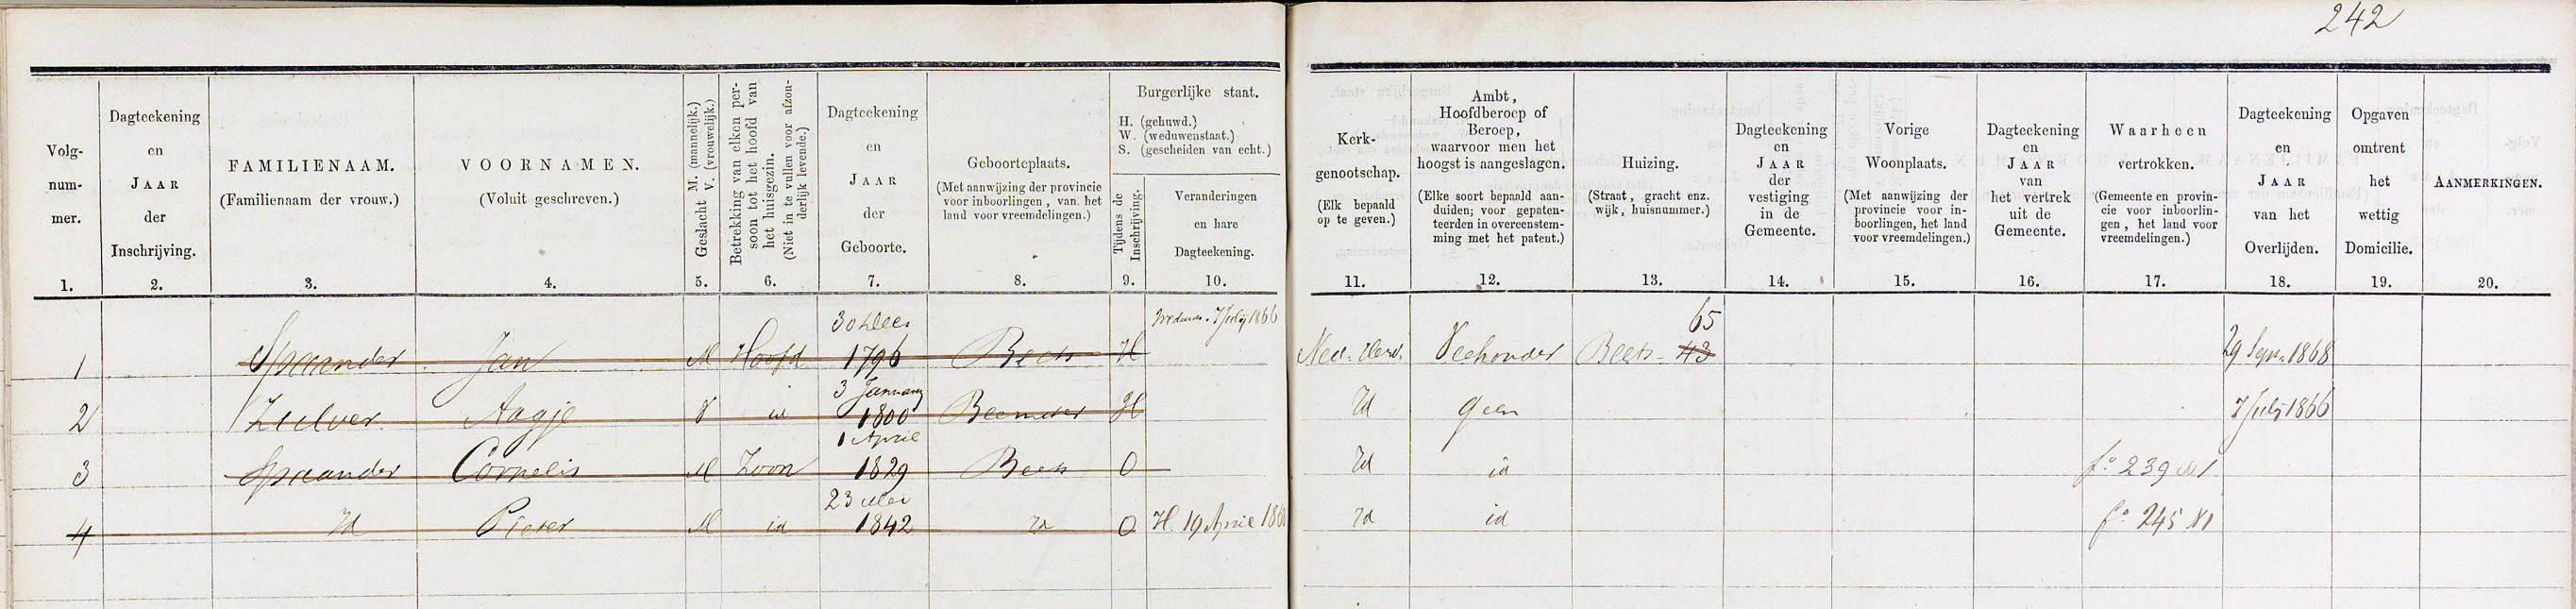 242
Volg-
num-
mer.
1.
Dagteekening
en
JAAR
der
Inschrijving.
2.
FAMILIENAAM.
(Familienaam der vrouw.)
3.
VOORNAMEN.
(Voluit geschreven.)
4.
Geslacht M. (mannelijk.)
V. (vrouwelijk.)
5.
Betrekking van elken per-
soon tot het hoofd van
het huisgezin.
(Niet in te vullen voor afzon-
derlijk levende.)
6.
Dagteekening
en
JAAR
der
Geboorte.
7.
Geboorteplaats.
(Met aanwijzing der provincie
voor inboorlingen, van het
land voor vreemdelingen.)
8.
Burgerlijke staat.
H. (gehuwd.)
W. (weduwenstaat.)
S. (gescheiden van echt.)
Tijdens de
Inschrijving.
9.
Veranderingen
en hare
Dagteekening.
10.
Kerk-
genootschap.
(Elk bepaald
op te geven.)
11.
Ambt,
Hoofdberoep of
Beroep,
waarvoor men het
hoogst is aangeslagen.
(Elke soort bepaald aan-
duiden; voor gepaten-
teerden in overeenstem-
ming met het patent.)
12.
Huizing.
(Straat, gracht enz.
wijk, huisnummer.)
13.
Dagteekening
en
JAAR
der
vestiging
in de
Gemeente.
14.
Vorige
Woonplaats.
(Met aanwijzing der
provincie voor in-
boorlingen, het land
voor vreemdelingen.)
15.
Dagteekening
en
JAAR
van
het vertrek
uit de
Gemeente.
16.
Waarheen
vertrokken.
(Gemeente en provin-
cie voor inboorlin-
gen, het land voor
vreemdelingen.)
17.
Dagteekening
en
JAAR
van het
Overlijden.
18.
Opgaven
omtrent
het
wettig
Domicilie.
19.
AANMERKINGEN.
20.
30 Dec. 7 July 1866 65
1 Spaander Jan M Hoofd 1796 Beets H Ned. Herv. Veehouder Beets 43 29 Sepr. 1868
3 January
2 Zilver Aagje V id 1800 Beemster H Id geen 7 July 1866
1 April
3 Spaander Cornelis M Zoon 1829 Beets O Id id fo 239 N 1
23 Mei
4 Id Pieter M id 1842 id O H. 19 April Id id fo 245 N 1